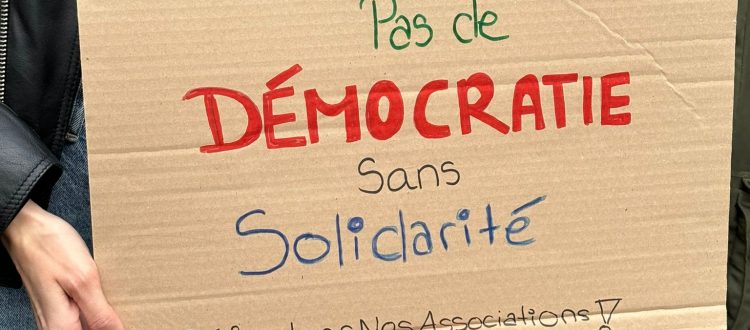 Pas de
DÉMOCRATIE
Sans
Solidarité
Nos Associations !